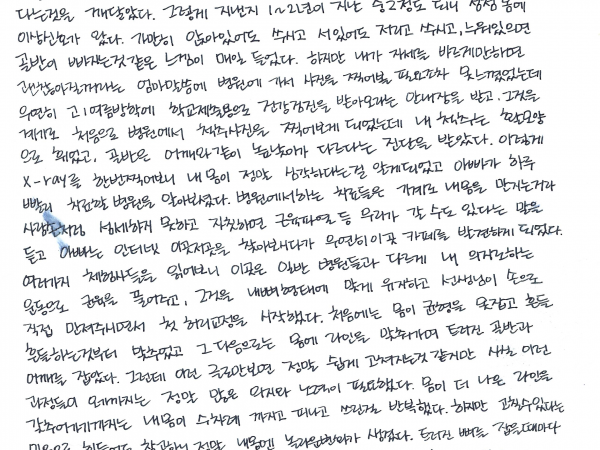 다는것을 깨달았다. 그렇게 지낸지 1~2년이 지난 중2정도 되니 성장 몸에
이상신호가 왔다. 가만히 앉아있어도 쑤시고 서있어도 저리고 쑤시고, 누워있으면
골반이 빠지는것같은 느낌이 매일 들었다. 하지만 내가 자세를 바르게만하면
괜찮아질꺼라는 엄마말씀에 병원에 가서 사진을 찍어볼 필요조차 못느꼈었는데
우연히 고1여름방학에 학교제출용으로 건강검진을 받아오라는 안내장을 받고 그것을
계기로 처음으로 병원에서 척추사진을 찍어보게 되었는데 내 척추는 S자모양
으로 휘었고, 골반은 어깨와같이 높낮이가 다르다는 진단을 받았다. 이렇게
X-ray를 한번찍어보니 내몸이 정말 심각하다는걸 알게되었고 아빠가 하루
빨리 치료할 병원을 알아보셨다. 병원에서하는 치료들은 기계로 내몸을 맞기는거라
사람손처럼 섬세하지 못하고 자칫하면 근육파열 등 무리가 갈 수도 있다는 말을
듣고 아빠는 인터넷 이곳저곳을 찾아보다가 우연히 이곳 카페를 발견하게 되었다.
여러가지 체험사들을 읽어보니 이곳은 일반 병원들과 다르게 내 의지로하는
운동으로 근육을 풀어주고, 그것을 내뼈형태에 맞게 유지하고 선생님이 손으로
직접 만져주시면서 첫 허리교정을 시작했다. 처음에는 몸이 균형을 못잡고 흔들
흔들하는것부터 맞추었고 그 다음으로는 몸에 라인을 맞춰가며 틀어진 골반과
어깨를 잡았다. 그런데 이런 글로만보면 정말 쉽게 고쳐지는것 같지만 사실 이런
과정들이 오기까지는 정말 많은 의지와 노력이 필요했다. 몸이 더 나은 라인을
갖추어가기까지는 내몸이 수차례 까지고 피나고 쓰린것을 반복했다. 하지만 고칠수있다는
힘들어도 참고하니 정말 내몸엔 놀라운변화가 생겼다. 틀어진 뼈를 잡을때마다